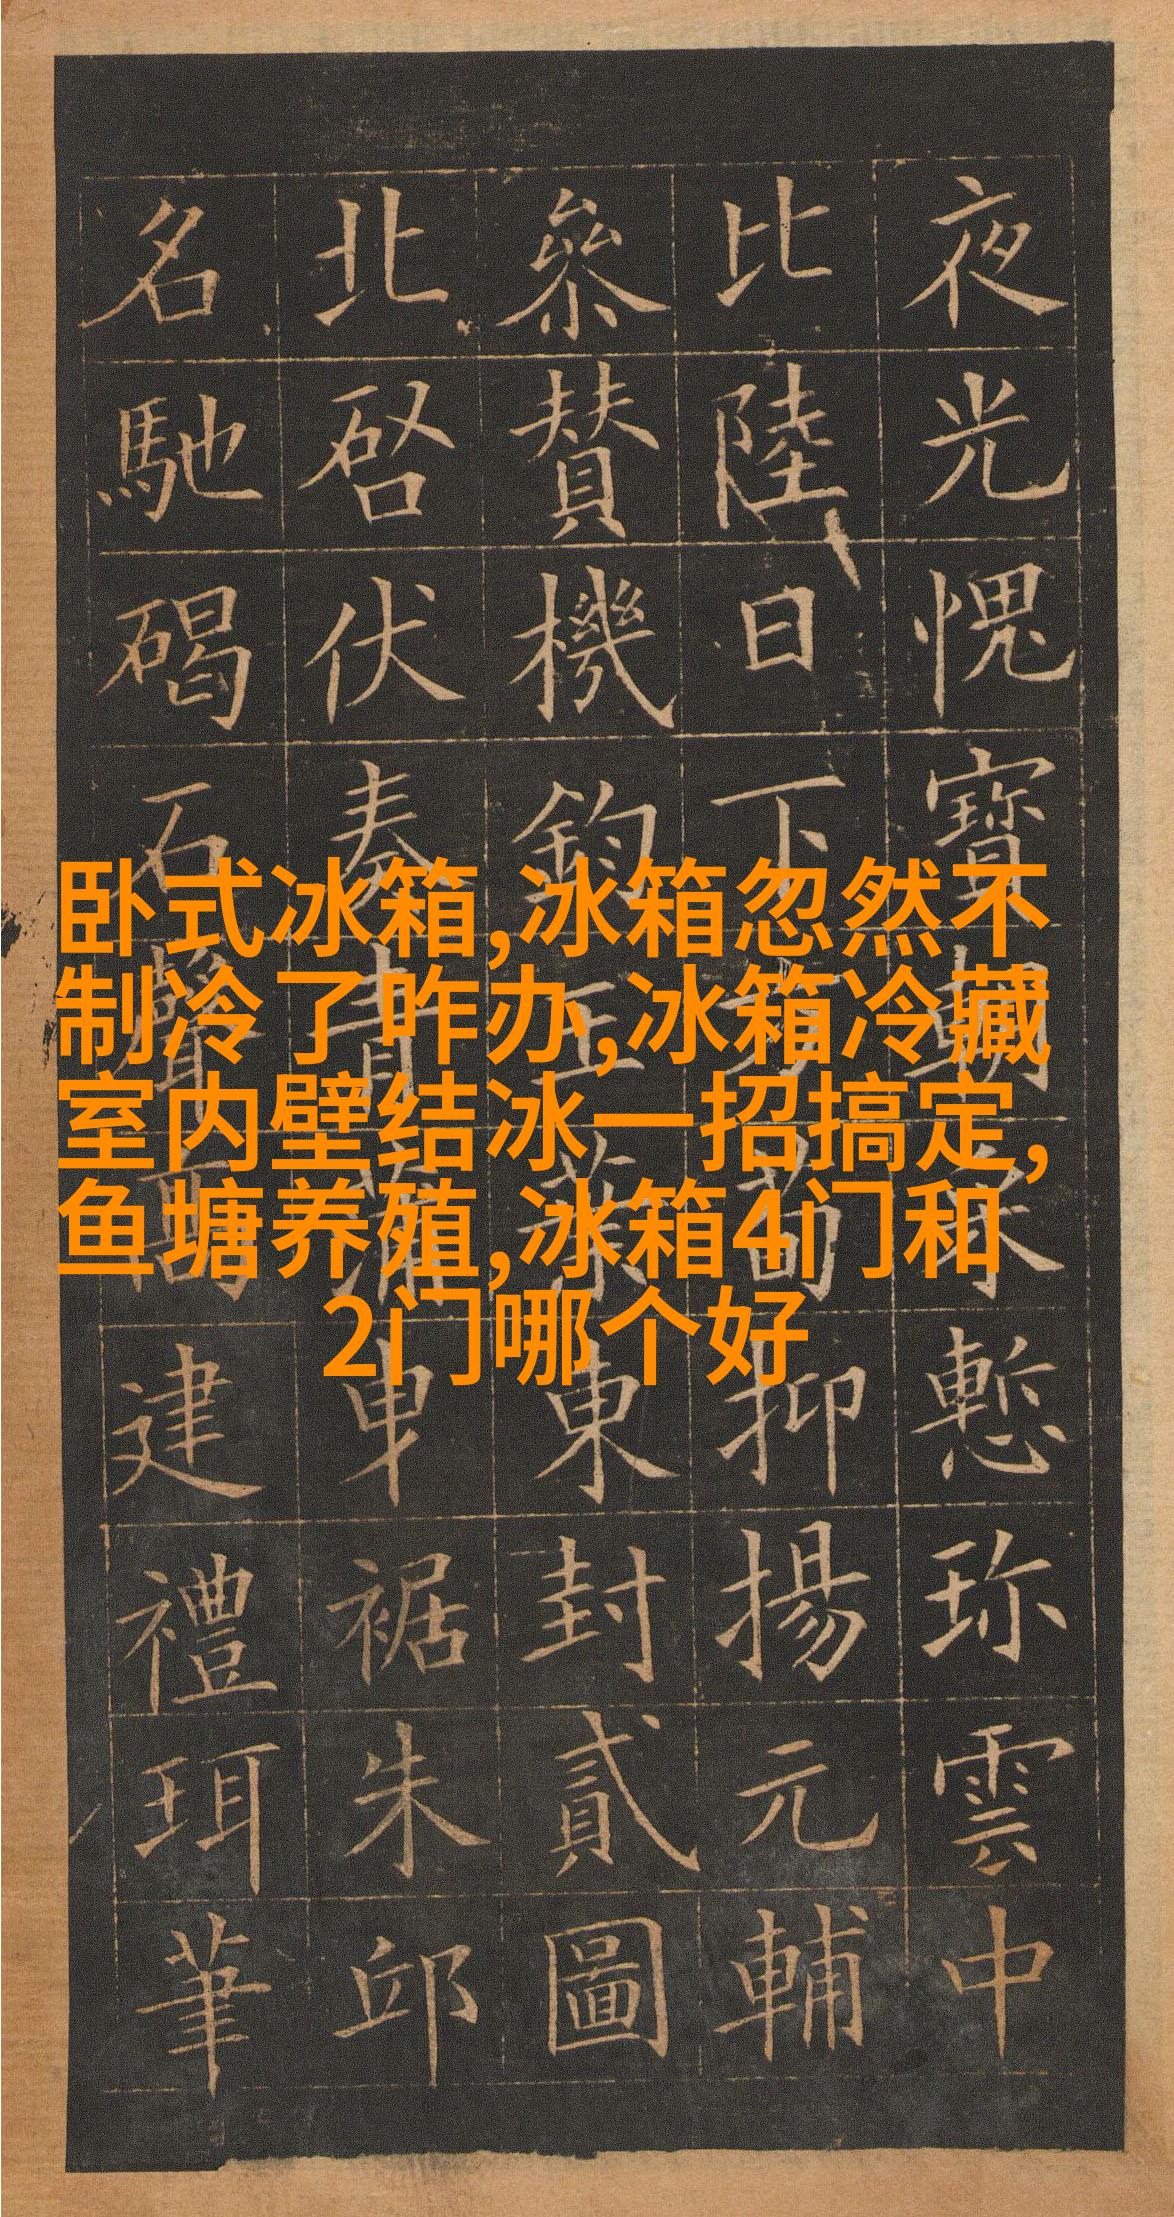 卧式冰箱,冰箱忽然不
制冷了咋办,冰箱冷藏
室内壁结冰一招搞定,
鱼塘养殖,冰箱4门和
2门哪个好
夜光愧寶朝采慙珎雲中
比陸日下方荀抑揚元輔
參賛機鈞玉葉東封貳圖
北啓伏奏青蒲曳裾朱邸
名馳碣石聲高建禮珥筆